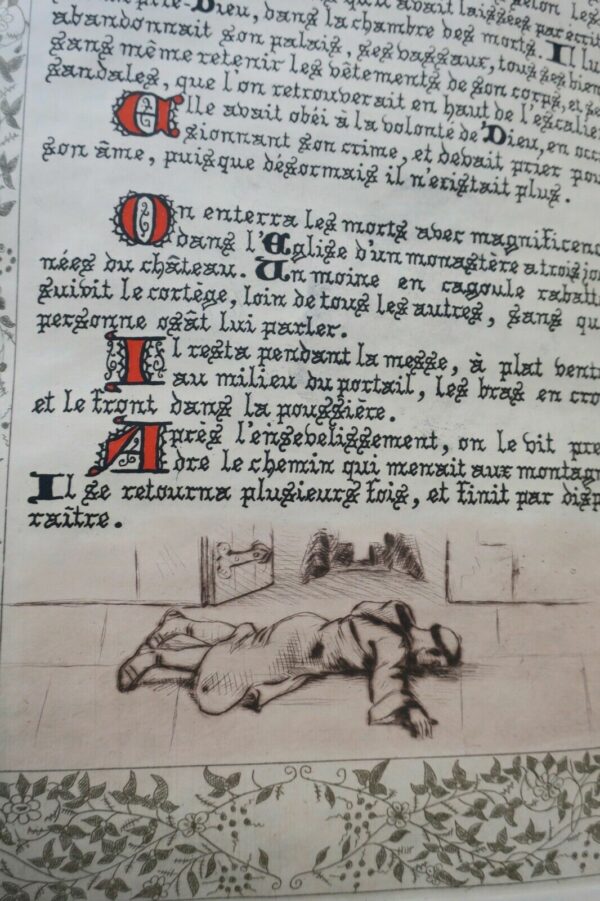 selon les
avait laissées par écrit
prie-Dieu, dans la chambre des morts. Il lu
abandonnait son palais, ses vassaux, tous ses bien
sans même retenir les vêtements de son corps, et se
sandales, que l'on retrouverait en haut de l'escalier
Elle avait obéi à la volonté de Dieu, en occ
sionnant son crime, et devait prier pou
son âme, puisque désormais il n'existait plus.
On enterra les morts avec magnificenc
dans l'Eglise d'un monastère a trois jo
nées du château. Un moine en cagoule rabatt
suivit le cortège, loin de tous les autres, sans qu
personne osât lui parler.
Il resta pendant la messe, à plat ventr
au milieu du portail, les bras en cro
et le front dans la poussière.
Après l'ensevelissement, on le vit pre
dre le chemin qui menait aux montagn
Il se retourna plusieurs fois, et finit par disp
raître.